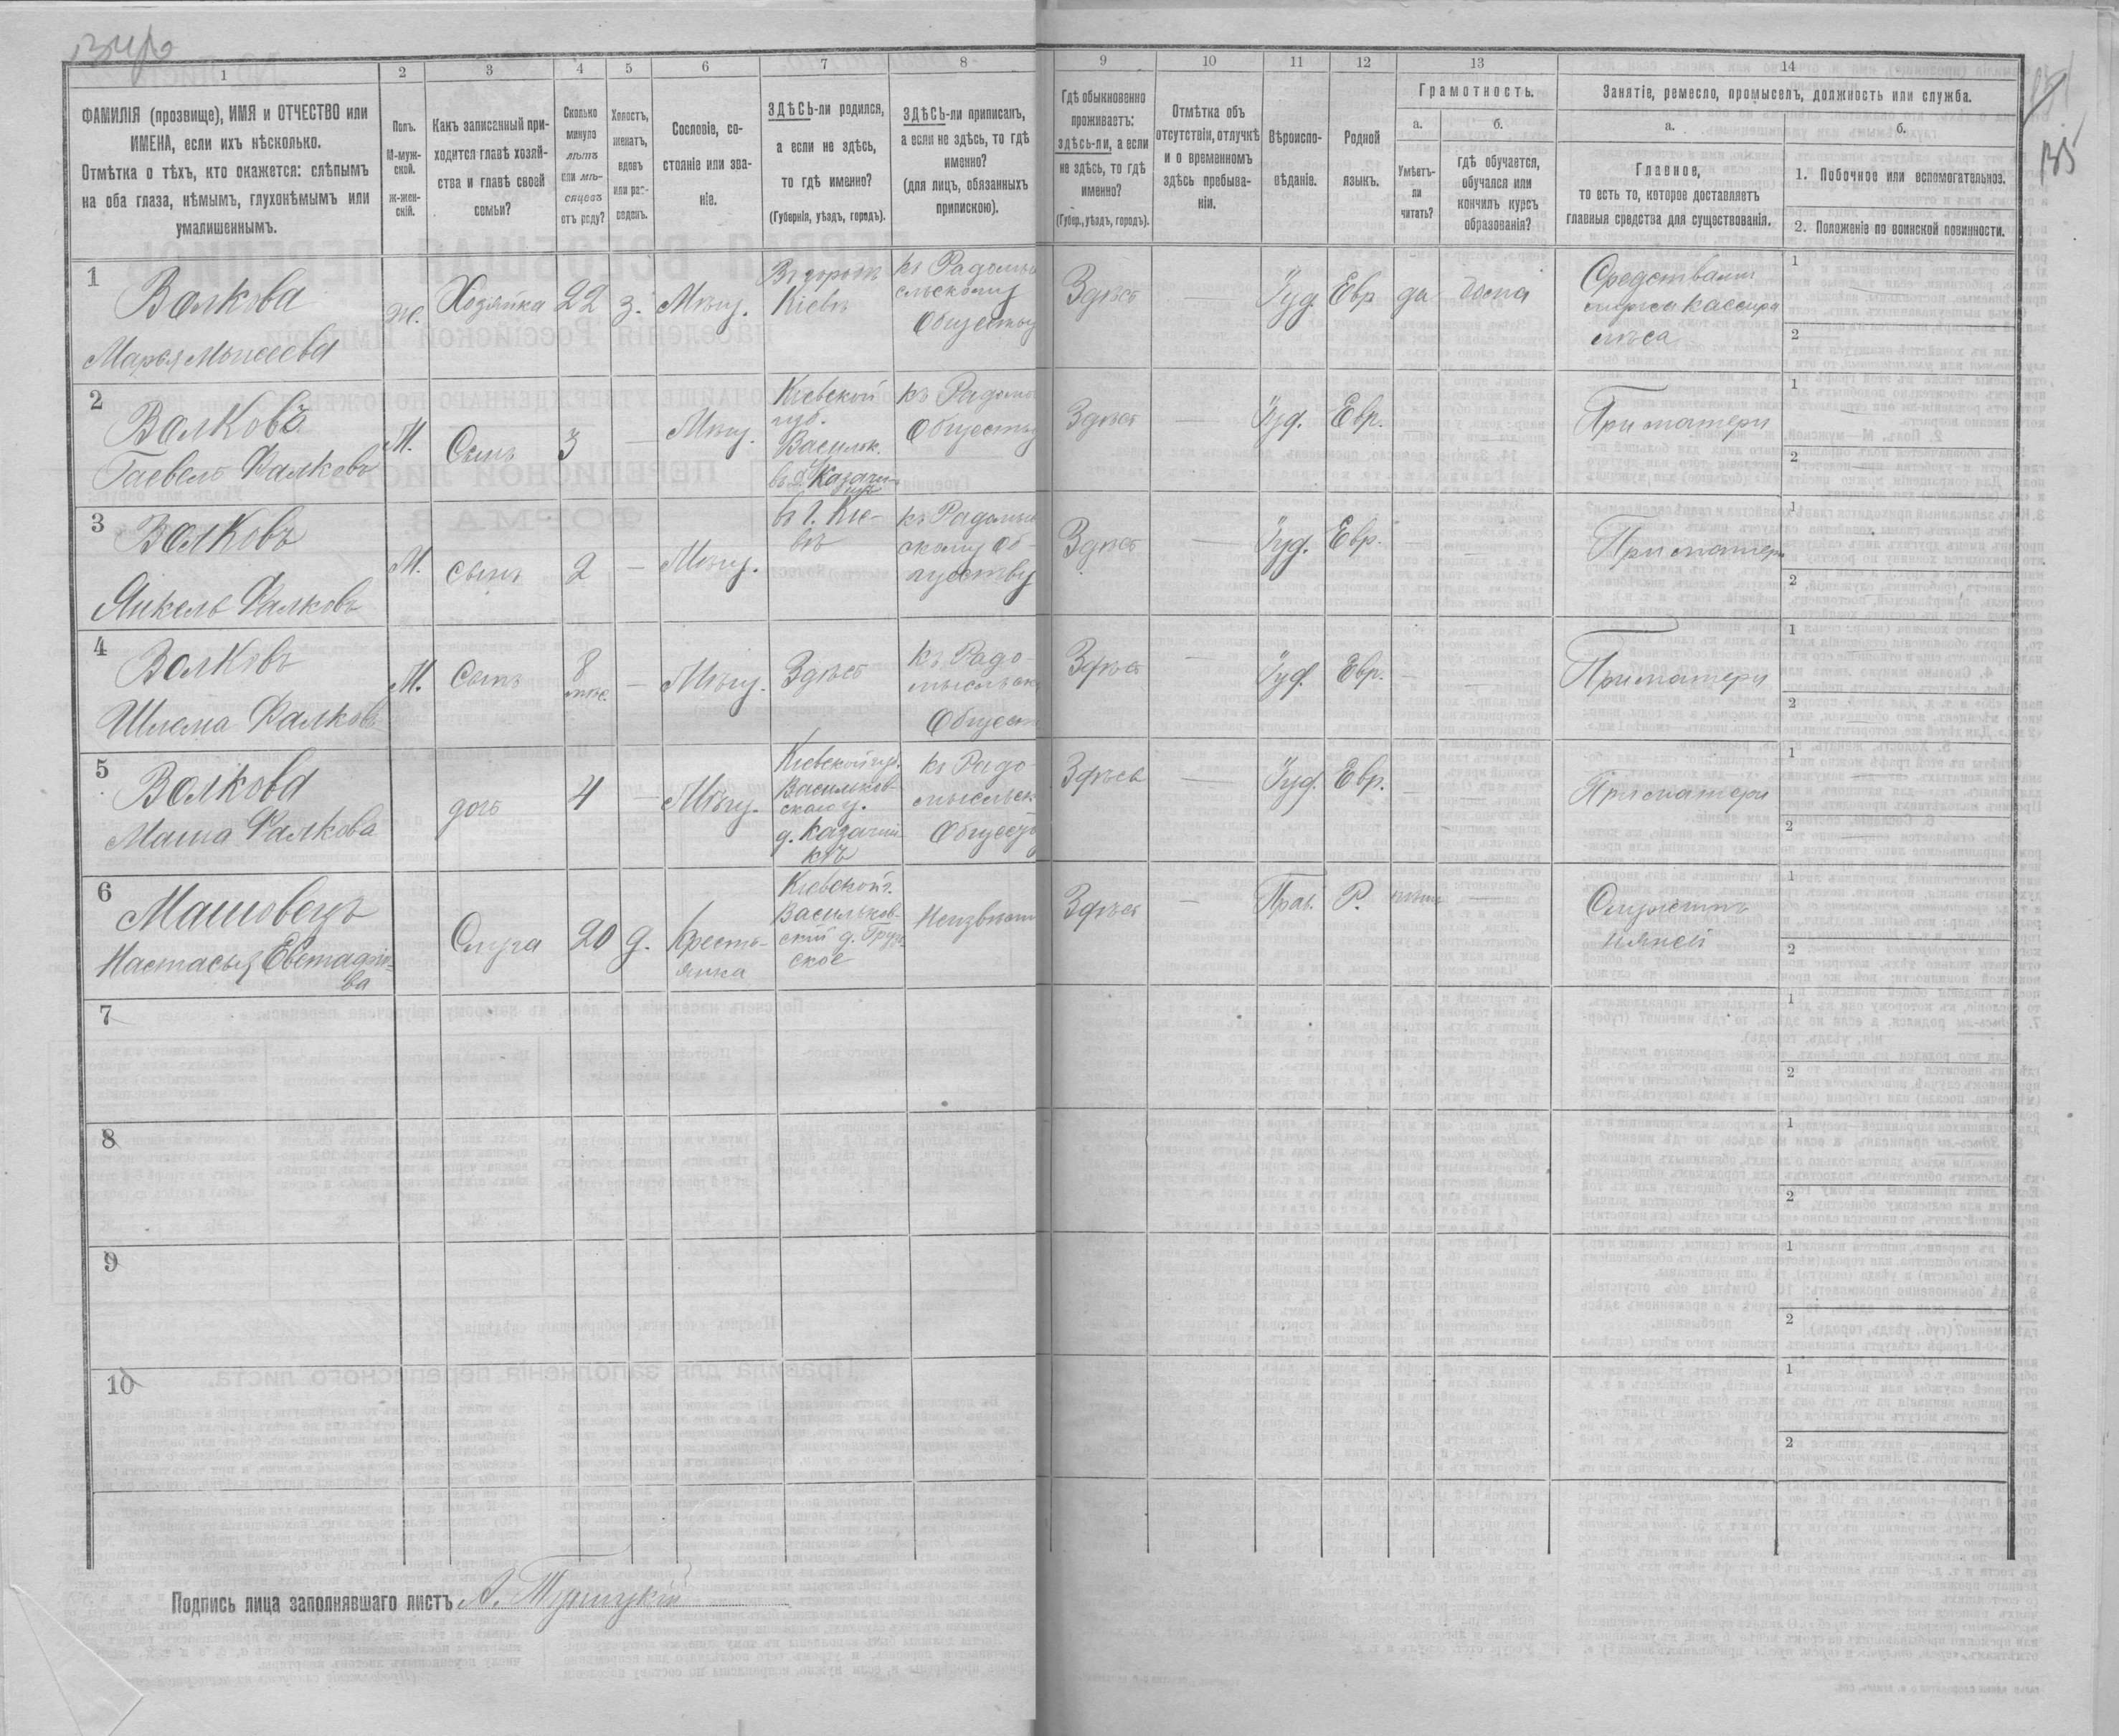 1
2
3
4
5
6
7
8
9
10
11
12
13
14
ФАМИЛІЯ (прозвище), ИМЯ и ОТЧЕСТВО или
ИМЕНА, если ихъ нѣсколько.
Отмѣтка о тѣхъ, кто окажется: слѣпымъ
на оба глаза, нѣмымъ, глухонѣмымъ или
умалишеннымъ.
Полъ.
М-муж-
ской.
Ж-жен-
скій.
Какъ записанный при-
ходится главѣ хозяй-
ства и главѣ своей
семьи?
Сколько
минуло
лѣтъ
или мѣ-
сяцевъ
отъ роду?
Холостъ,
женатъ,
вдовъ
или раз-
веденъ.
Сословіе, со-
стояніе или зва-
ніе.
ЗДѢСЬ-ли родился,
а если не здѣсь,
то гдѣ именно?
(Губернія, уѣздъ, городъ).
ЗДѢСЬ-ли приписанъ,
а если не здѣсь, то гдѣ
именно?
(для лицъ, обязанныхъ
припискою).
Гдѣ обыкновенно
проживаетъ:
здѣсь-ли, а если
не здѣсь, то гдѣ
именно?
(Губер., уѣздъ, городъ).
Отмѣтка объ
отсутствіи, отлучкѣ
и о временномъ
здѣсь пребыва-
ніи.
Вѣроиспо-
вѣданіе.
Родной
языкъ.
Грамотность.
а.
Умѣетъ-
ли
читать?
б.
гдѣ обучается,
обучался или
кончилъ курсъ
образованія?
Занятіе, ремесло, промыселъ, должность или служба.
а.
Главное,
то есть то, которое доставляетъ
главныя средства для существованія.
б.
1. Побочное или вспомогательное.
2. Положеніе по воинской повинности.
1
Волкова
Марья Мысеева
ж.
Хозяйка
22
з.
Мѣщ.
Въ городѣ
Кіевѣ
къ Радомы
сльскому
Обществу
Здѣсь
—
Іуд
Евр
да
дома
Средствами
мужа кассира
лѣса
1
2
2
Волковъ
Гаевель Фалковъ
М.
Сынъ
3
—
Мѣщ.
Кіевской
губ.
Васильк.
къ Радом
Обществу
Здѣсь
—
Іуд.
Евр.
При матери
1
2
3
Волковъ
Янкель Фалковъ
М.
сынъ
2
—
Мѣщ.
въ г. Кіе-
вѣ
къ Радомы
скому Об-
ществу
Здѣсь
—
Іуд.
Евр.
—
—
При матери
1
2
4
Волковъ
Шлема Фалковъ
М.
Сынъ
8
мѣс.
—
Мѣщ.
Здѣсь
къ Радо-
мысльск
Общест
Здѣсь
—
Іуд.
Евр.
—
—
При матери
1
2
5
Волкова
Маша Фалкова
дочь
4
—
Мѣщ.
Кіевской губ.
Васильков-
скаго у.
къ Радо
мысльск
Обществ
Здѣсь
—
Іуд.
Евр.
—
—
При матери
1
2
6
Машовецъ
Настасья Евстафіе-
ва
Слуга
20
д.
Кресть-
янка
Кіевской г.
Васильков-
скій
Неизвѣстн
Здѣсь
—
Прав.
Р.
—
Служитъ
няней
1
2
7
1
2
8
1
2
9
1
2
10
1
2
Подпись лица заполнявшаго листъ